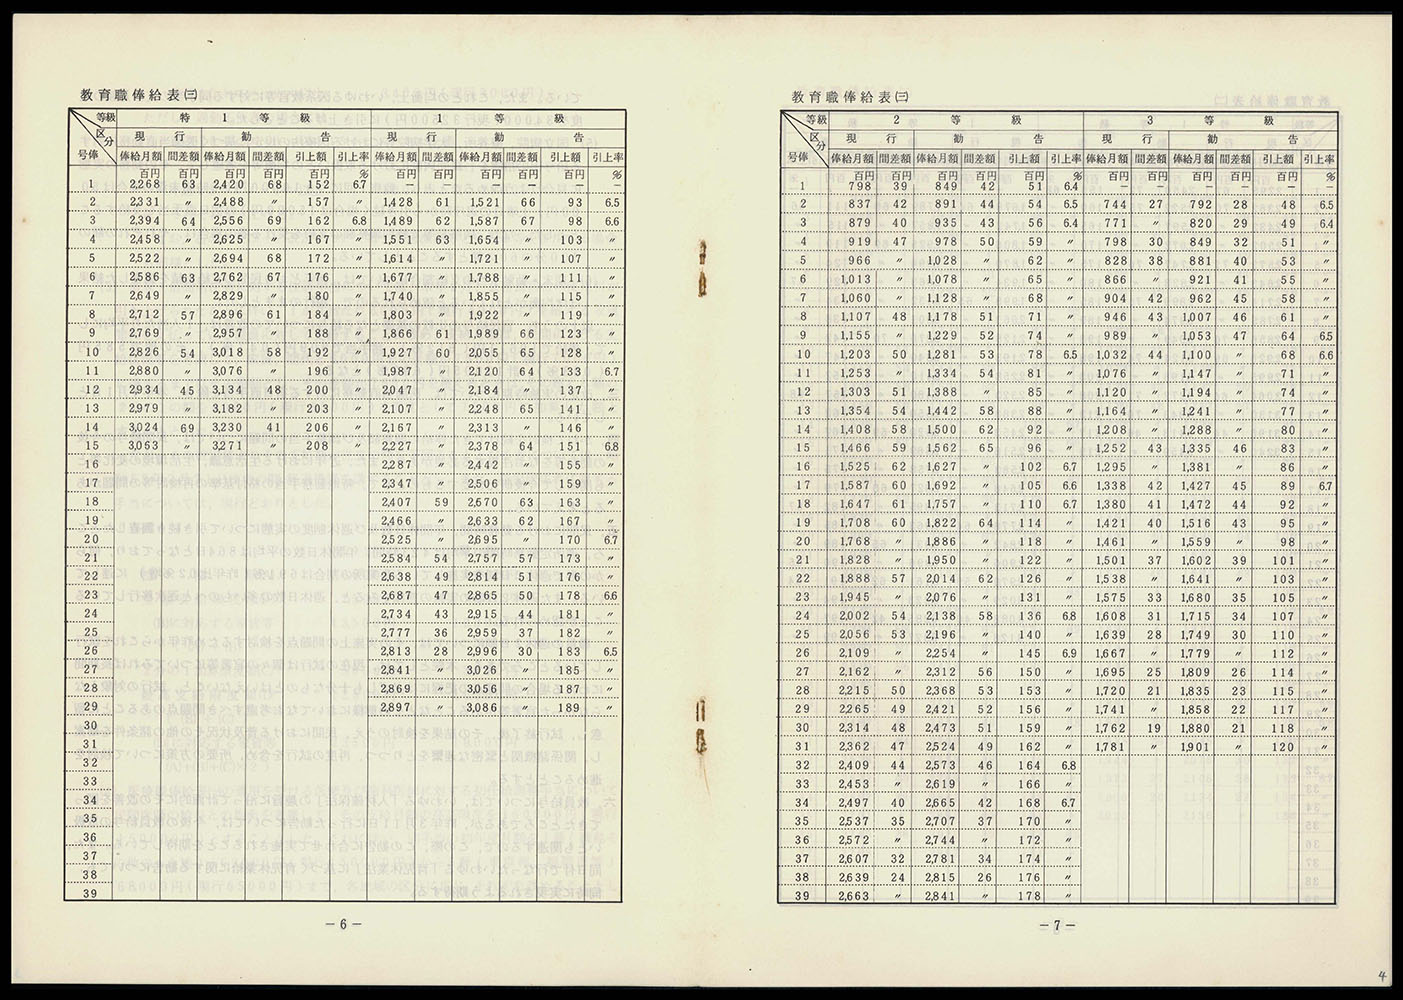 教育職俸給表㈢
等級 特 1 等 級 1 等 級
区分 現 行 勧 告 現 行 勧 告
号俸 俸給月額 間差額 俸給月額 間差額 引上額 引上率 俸給月額 間差額 俸給月額 間差額 引上額 引上率
百円 百円 百円 百円 百円 % 百円 百円 百円 百円 百円 %
1 2,268 63 2,420 68 152 6.7 — — — — — —
2 2,331 〃 2,488 〃 157 〃 1,428 61 1,521 66 93 6.5
3 2,394 64 2,556 69 162 6.8 1,489 62 1,587 67 98 6.6
4 2,458 〃 2,625 〃 167 〃 1,551 63 1,654 〃 103 〃
5 2,522 〃 2,694 68 172 〃 1,614 〃 1,721 〃 107 〃
6 2,586 63 2,762 67 176 〃 1,677 〃 1,788 〃 111 〃
7 2,649 〃 2,829 〃 180 〃 1,740 〃 1,855 〃 115 〃
8 2,712 57 2,896 61 184 〃 1,803 〃 1,922 〃 119 〃
9 2,769 〃 2,957 〃 188 〃 1,866 61 1,989 66 123 〃
10 2,826 54 3,018 58 192 〃 1,927 60 2,055 65 128 〃
11 2,880 〃 3,076 〃 196 〃 1,987 〃 2,120 64 133 6.7
12 2,934 45 3,134 48 200 〃 2,047 〃 2,184 〃 137 〃
13 2,979 〃 3,182 〃 203 〃 2,107 〃 2,248 65 141 〃
14 3,024 69 3,230 41 206 〃 2,167 〃 2,313 〃 146 〃
15 3,063 〃 3,271 〃 208 〃 2,227 〃 2,378 64 151 6.8
16 2,287 〃 2,442 〃 155 〃
17 2,347 〃 2,506 〃 159 〃
18 2,407 59 2,570 63 163 〃
19 2,466 〃 2,633 62 167 〃
20 2,525 〃 2,695 〃 170 6.7
21 2,584 54 2,757 57 173 〃
22 2,638 49 2,814 51 176 〃
23 2,687 47 2,865 50 178 6.6
24 2,734 43 2,915 44 181 〃
25 2,777 36 2,959 37 182 〃
26 2,813 28 2,996 30 183 6.5
27 2,841 〃 3,026 〃 185 〃
28 2,869 〃 3,056 〃 187 〃
29 2,897 〃 3,086 〃 189 〃
30
31
32
33
34
35
36
37
38
39
－6－
教育職俸給表㈢
等級 2 等 級 3 等 級
区分 現 行 勧 告 現 行 勧 告
号俸 俸給月額 間差額 俸給月額 間差額 引上額 引上率 俸給月額 間差額 俸給月額 間差額 引上額 引上率
百円 百円 百円 百円 百円 % 百円 百円 百円 百円 百円 %
1 798 39 849 42 51 6.4 — — — — — —
2 837 42 891 44 54 6.5 744 27 792 28 48 6.5
3 879 40 935 43 56 6.4 771 〃 820 29 49 6.4
4 919 47 978 50 59 〃 798 30 849 32 51 〃
5 966 〃 1,028 〃 62 〃 828 38 881 40 53 〃
6 1,013 〃 1,078 〃 65 〃 866 〃 921 41 55 〃
7 1,060 〃 1,128 〃 68 〃 904 42 962 45 58 〃
8 1,107 48 1,178 51 71 〃 946 43 1,007 46 61 〃
9 1,155 〃 1,229 52 74 〃 989 〃 1,053 47 64 6.5
10 1,203 50 1,281 53 78 6.5 1,032 44 1,100 〃 68 6.6
11 1,253 〃 1,334 54 81 〃 1,076 〃 1,147 〃 71 〃
12 1,303 51 1,388 〃 85 〃 1,120 〃 1,194 〃 74 〃
13 1,354 54 1,442 58 88 〃 1,164 〃 1,241 〃 77 〃
14 1,408 58 1,500 62 92 〃 1,208 〃 1,288 〃 80 〃
15 1,466 59 1,562 65 96 〃 1,252 43 1,335 46 83 〃
16 1,525 62 1,627 〃 102 6.7 1,295 〃 1,381 〃 86 〃
17 1,587 60 1,692 〃 105 6.6 1,338 42 1,427 45 89 6.7
18 1,647 61 1,757 〃 110 6.7 1,380 41 1,472 44 92 〃
19 1,708 60 1,822 64 114 〃 1,421 40 1,516 43 95 〃
20 1,768 〃 1,886 〃 118 〃 1,461 〃 1,559 〃 98 〃
21 1,828 〃 1,950 〃 122 〃 1,501 37 1,602 39 101 〃
22 1,888 57 2,014 62 126 〃 1,538 〃 1,641 〃 103 〃
23 1,945 〃 2,076 〃 131 〃 1,575 33 1,680 35 105 〃
24 2,002 54 2,138 58 136 6.8 1,608 31 1,715 34 107 〃
25 2,056 53 2,196 〃 140 〃 1,639 28 1,749 30 110 〃
26 2,109 〃 2,254 〃 145 6.9 1,667 〃 1,779 〃 112 〃
27 2,162 〃 2,312 56 150 〃 1,695 25 1,809 26 114 〃
28 2,215 50 2,368 53 153 〃 1,720 21 1,835 23 115 〃
29 2,265 49 2,421 52 156 〃 1,741 〃 1,858 22 117 〃
30 2,314 48 2,473 51 159 〃 1,762 19 1,880 21 118 〃
31 2,362 47 2,524 49 162 〃 1,781 〃 1,901 〃 120 〃
32 2,409 44 2,573 46 164 6.8
33 2,453 〃 2,619 〃 166 〃
34 2,497 40 2,665 42 168 6.7
35 2,537 35 2,707 37 170 〃
36 2,572 〃 2,744 〃 172 〃
37 2,607 32 2,781 34 174 〃
38 2,639 24 2,815 26 176 〃
39 2,663 〃 2,841 〃 178 〃
－7－
4